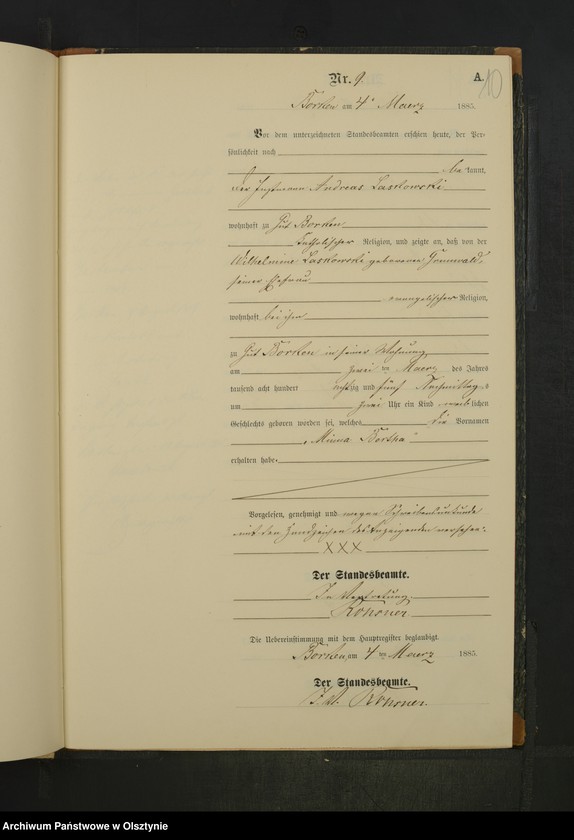 Nr. 9.
A.
10
Borken am 4ten Maerz 1885.
Vor dem unterzeichneten Standesbeamten erschien heute, der Per-
sönlichkeit nach
bekannt,
der Instmann Andreas Laskowski
wohnhaft zu Gut Borken
katholischer Religion, und zeigte an, daß von der
Wilhelmine Laskowski geborenen Grunwald,
seiner Ehefrau
evangelischer Religion,
wohnhaft bei ihm
zu Gut Borken in seiner Wohnung
am zwei ten Maerz des Jahres
tausend acht hundert achtzig und fünf Nachmittags
um zwei Uhr ein Kind weiblichen
Geschlechts geboren worden sei, welches die Vornamen
„Minna Bertha“
erhalten habe.
Vorgelesen, genehmigt und wegen Schreibensunkunde
mit den Handzeichen des Anzeigenden versehen.
XXX
Der Standesbeamte.
In Vertretung
Die Uebereinstimmung mit dem Hauptregister beglaubigt.
Borken, am 4 ten Maerz 1885.
Der Standesbeamte.
I. V.
Archiwum Państwowe w Olsztynie